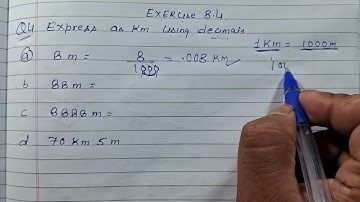 EXERCISE 8.4
Q4 Express as Km using decimals
1 Km = 1000m
(a) 8 m = 8/1000 = .008 Km
b 88 m =
c 8888 m =
d 70 Km 5 m